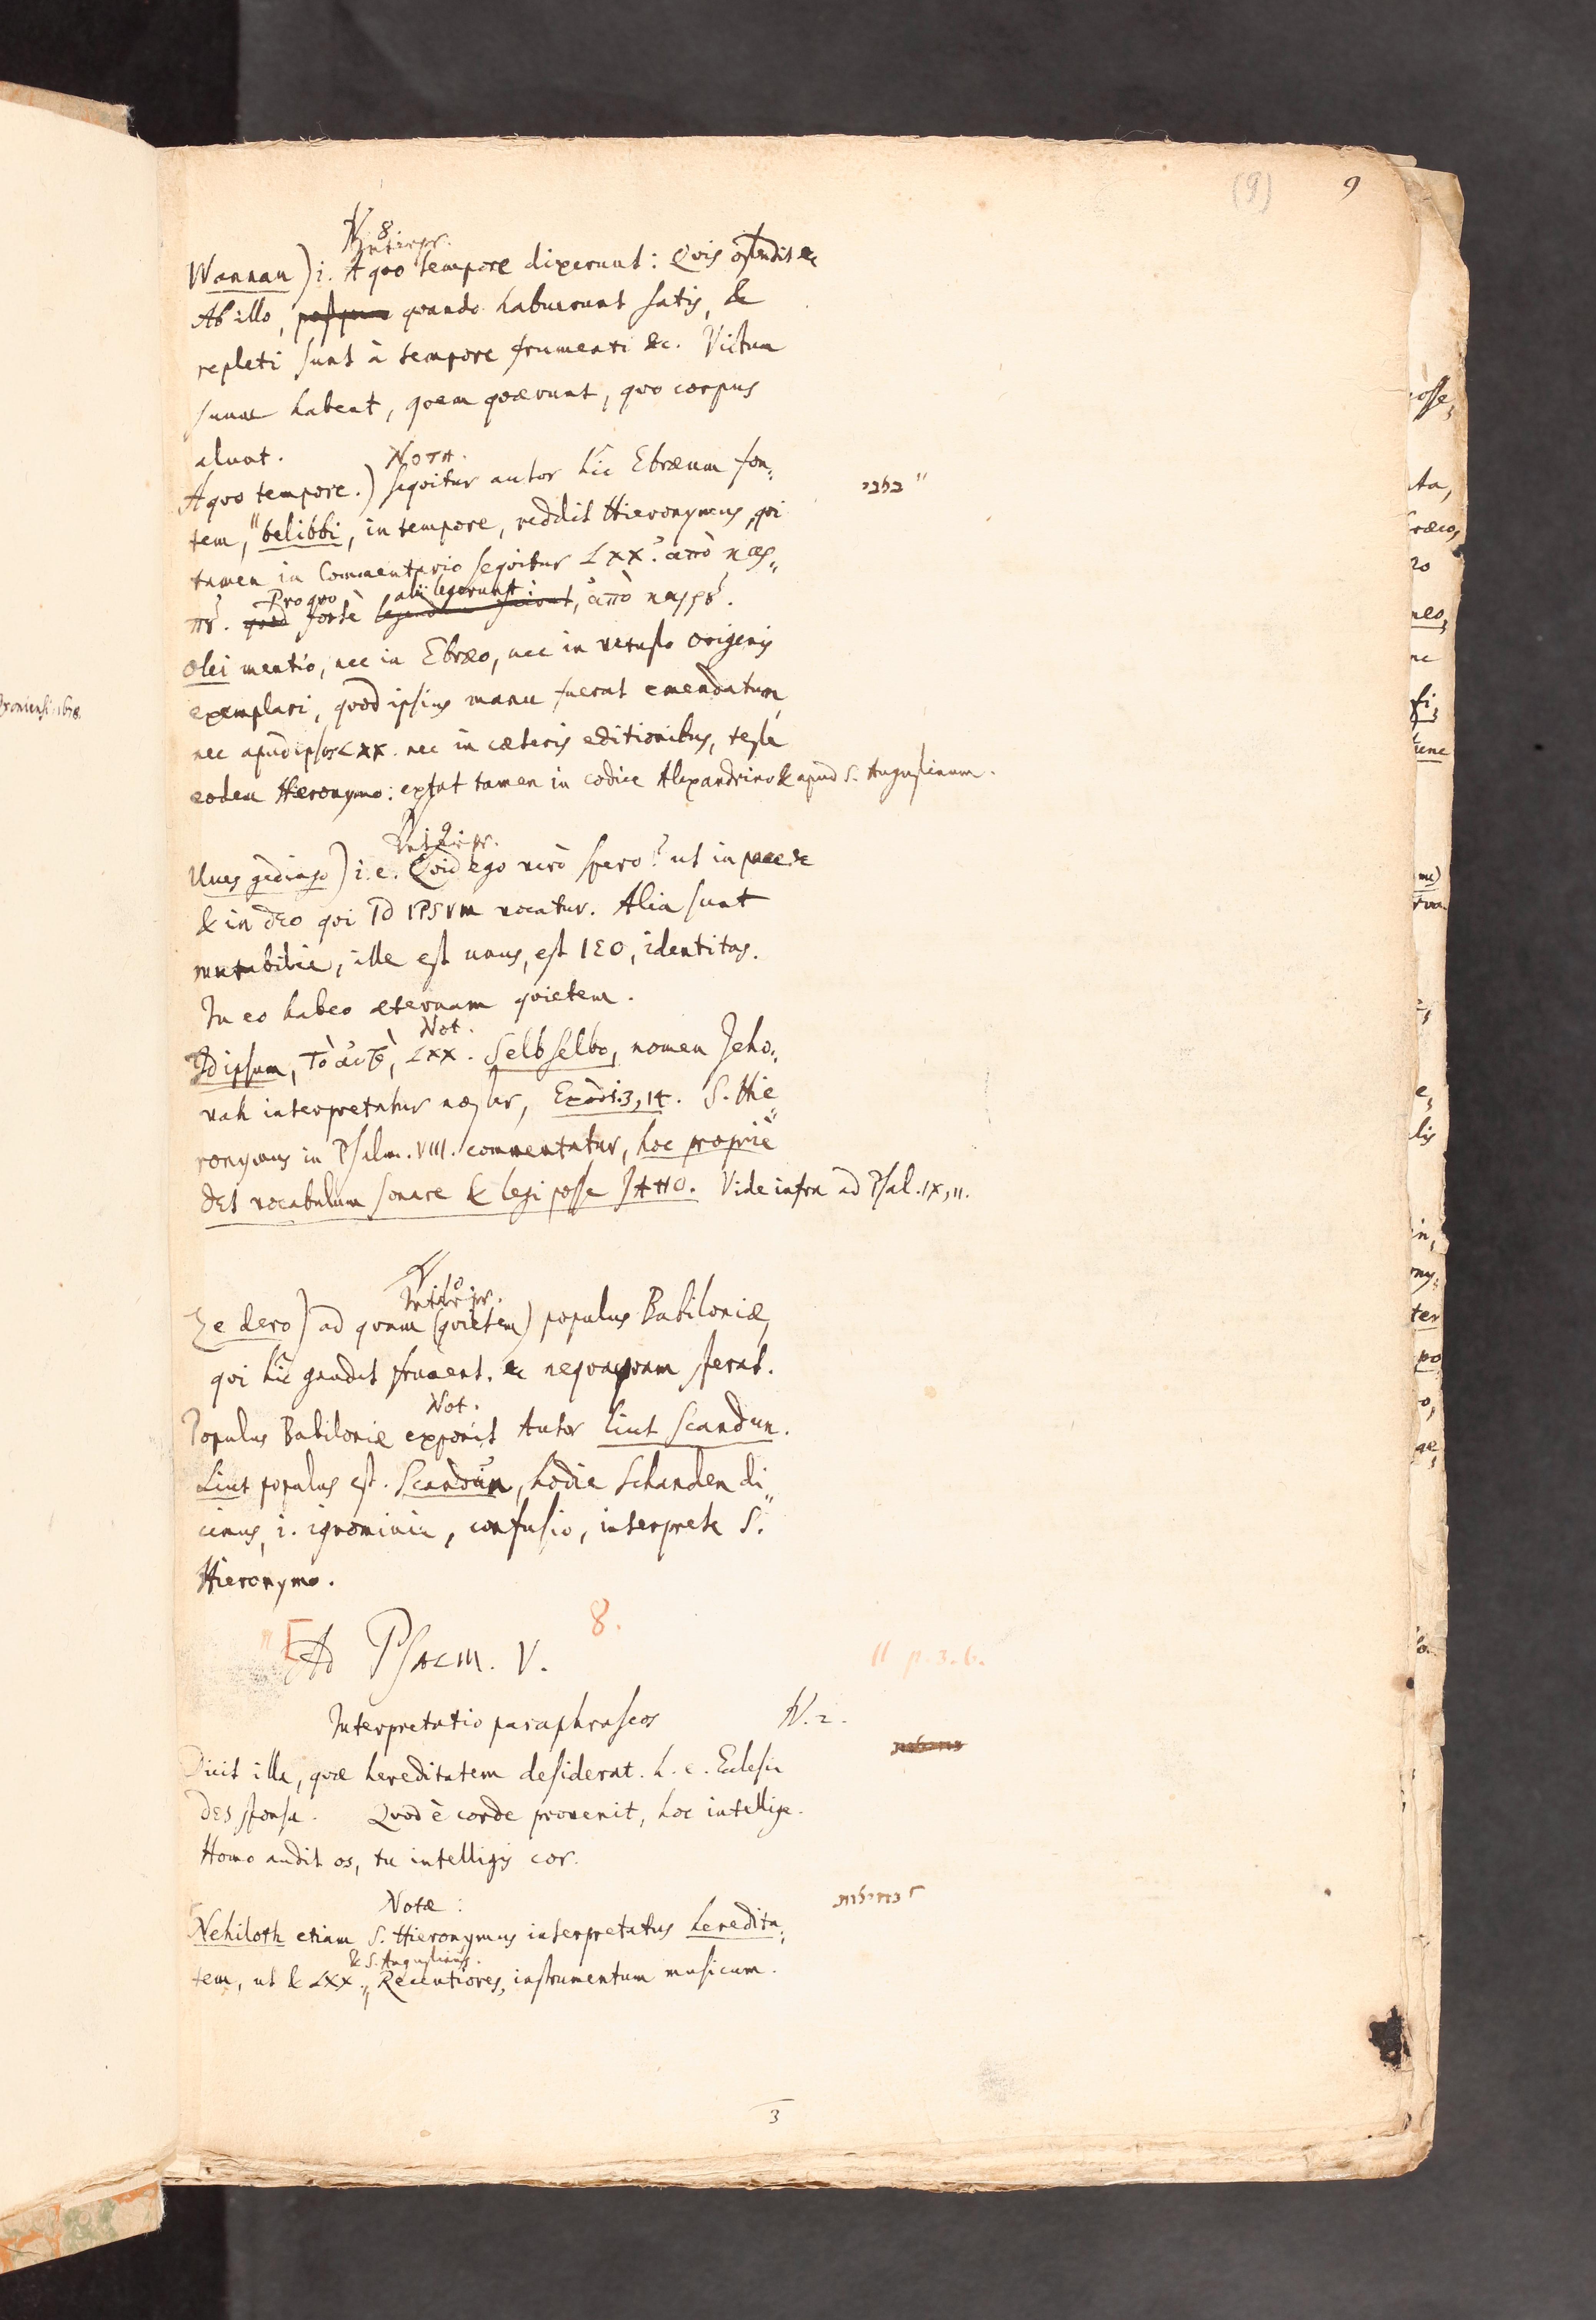 (9) 9
N 8
Interpr.
Wannan) i. A quo tempore dixerunt: Quis ostendit &c
Ab illo, postquam quando habuerunt satis, &
repleti sunt à tempore frumenti &c. Victum
suum habent, quem quærunt, quo corpus
alunt.
NOTA.
A quo tempore.) sequitur autor hîc Ebræum fon„
tem, "belibbi, in tempore, reddit Hieronymus, qui
" בלבי
tamen in Commentario sequitur LXX. ἀπὸ καρ„
Pro quo alii legerunt
πȣ͂. quod fortè , ἀπὸ καιρȣ͂.
Olei mentio, nec in Ebræo, nec in vetusto Origenis
exemplari, quod ipsius manu fuerat emendatum,
nec apud ipsos LXX. nec in cæteris editionibus, teste
eodem Hieronymo: extat tamen in codice Alexandrino & apud S. Augustinum.
N 9
Interpr.
Uues gedingo) i.e. Quid ego verò spero? ut in pace &c
& in DEO qui ID IPSVM vocatur. Alia sunt
mutabilia, ille est unus, est IEO, identitas.
In eo habeo æternam quietem.
Not.
Id ipsum, τὸ ἀυτὸ, LXX. Selbselbo, nomen Jeho„
vah interpretatur noster, Exod. 3, 14. S. Hie„
ronymus in Psalm. VIII. commentatur, hoc propriè
DEI vocabulum sonare & legi posse JAHO. Vide infra ad Psal. IX, 11.
N 10
Interpr.
Ze dero) ad quam (quietem) populus Babiloniæ,
qui hîc gaudet frument. &c nequaquam sperat.
Not.
Populus Babiloniæ exponit Autor liut Scandun.
Liut populus est. Scandûn, hodie Schanden di„
cimus, i. ignominia, confusio, interprete S.
Hieronymo.
8.
" [Ad PSALM. V.
" p. 3. b.
Interpretatio paraphraseos N. 2.
Dicit illa, quæ hereditatem desiderat. h. e. Eclesia
DEI sponsa. Quod è corde provenit, hoc intellige.
Homo audit os, tu intelligis cor.
Notæ:
Nehiloth etiam S. Hieronymus interpretatus heredita„
& S. Augustinus.
tem, ut & LXX. „ Recentiores, instrumentum musicum.
3